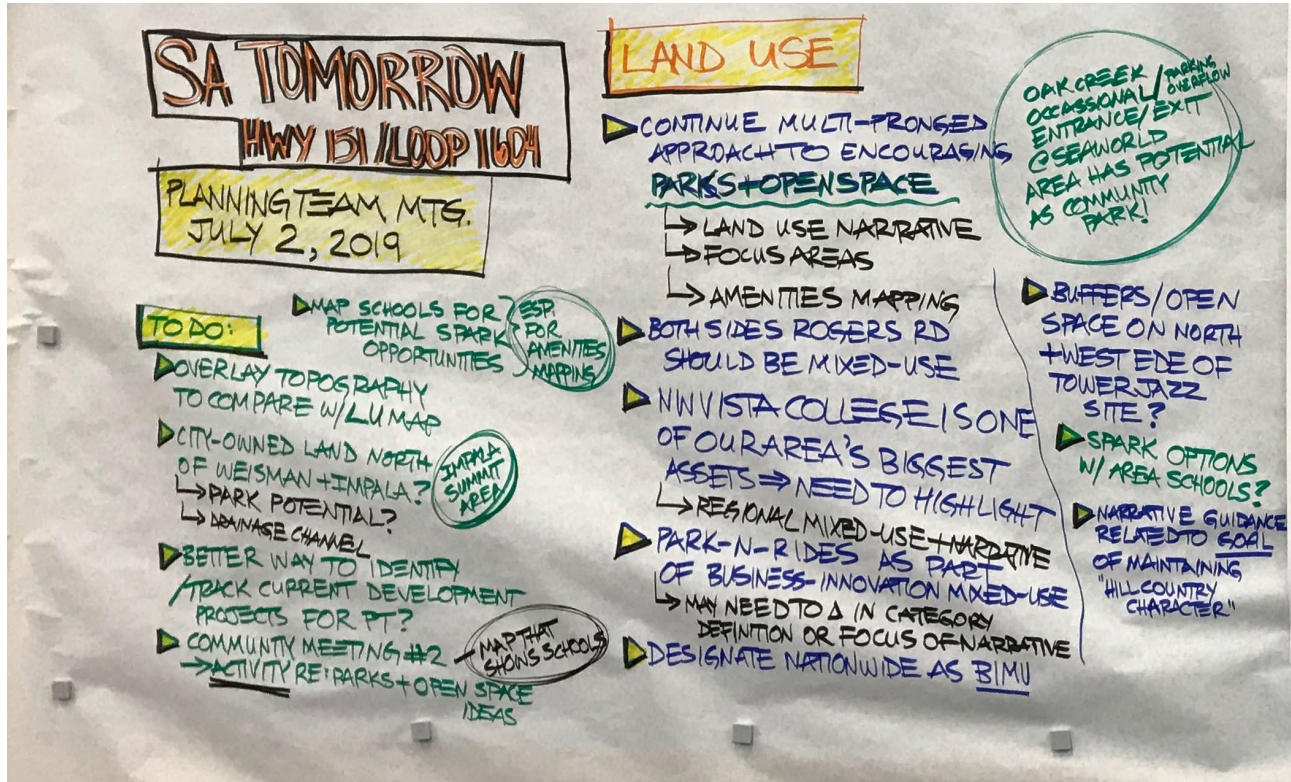 SA TOMORROW
HWY 151 / LOOP 1604
PLANNING TEAM MTG.
JULY 2, 2019
TO DO:
MAP SCHOOLS FOR
POTENTIAL SPARK
OPPORTUNITIES
ESP.
FOR
AMENITIES
MAPPING
OVERLAY TOPOGRAPHY
TO COMPARE W/ LU MAP
CITY-OWNED LAND NORTH
OF WEISMAN + IMPALA?
IMPALA
SUMMIT
AREA
↳ PARK POTENTIAL?
↳ DRAINAGE CHANNEL
BETTER WAY TO IDENTIFY
/TRACK CURRENT DEVELOPMENT
PROJECTS FOR PT?
COMMUNITY MEETING #2
MAP THAT
SHOWS SCHOOLS
→ ACTIVITY RE: PARKS + OPEN SPACE
IDEAS
LAND USE
CONTINUE MULTI-PRONGED
APPROACH TO ENCOURAGING
PARKS + OPEN SPACE
↳ LAND USE NARRATIVE
↳ FOCUS AREAS
↳ AMENITIES MAPPING
BOTH SIDES ROGERS RD
SHOULD BE MIXED-USE
NW VISTA COLLEGE IS ONE
OF OUR AREA'S BIGGEST
ASSETS ⇒ NEED TO HIGHLIGHT
↳ REGIONAL MIXED-USE + NARRATIVE
PARK-N-RIDES AS PART
OF BUSINESS-INNOVATION MIXED-USE
↳ MAY NEED TO Δ IN CATEGORY
DEFINITION OR FOCUS OF NARRATIVE
DESIGNATE NATIONWIDE AS BIMU
OAK CREEK
OCCASSIONAL / PARKING OVERFLOW
ENTRANCE/EXIT
@ SEAWORLD
AREA HAS POTENTIAL
AS COMMUNITY
PARK!
BUFFERS / OPEN
SPACE ON NORTH
+ WEST EDE OF
TOWER JAZZ
SITE?
SPARK OPTIONS
W/ AREA SCHOOLS?
NARRATIVE GUIDANCE
RELATED TO GOAL
OF MAINTAINING
"HILL COUNTRY
CHARACTER"